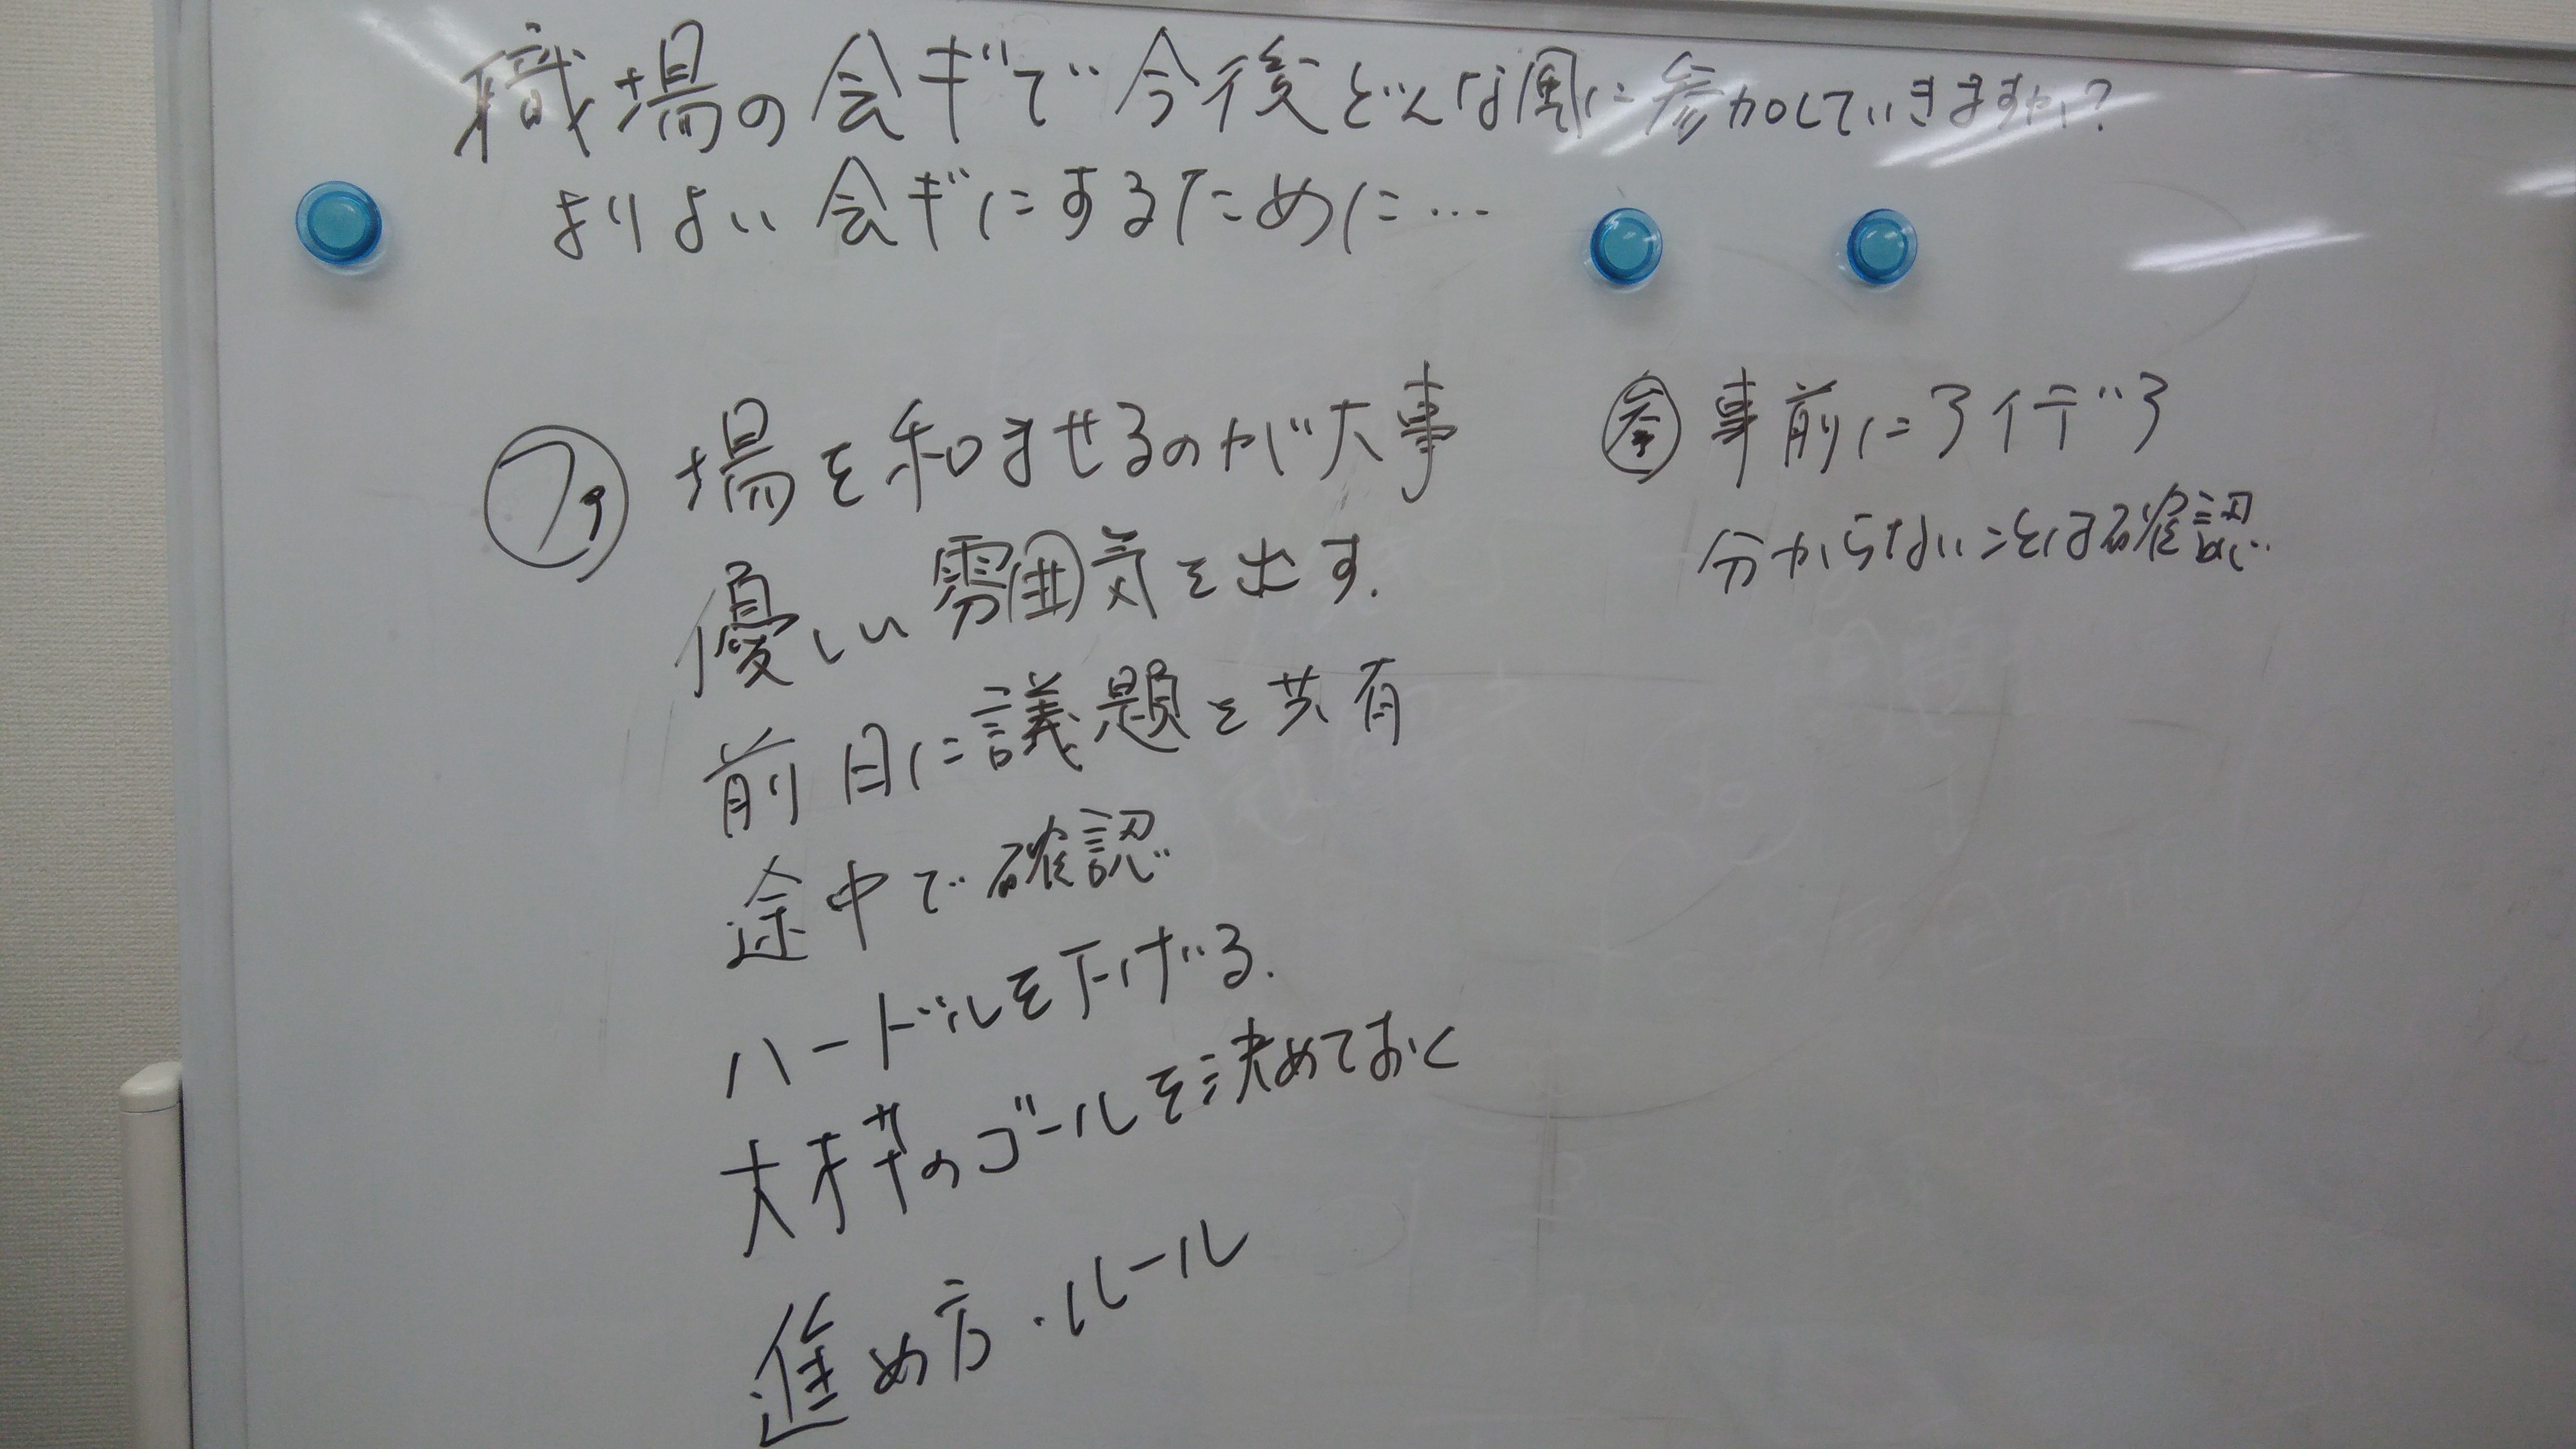 職場の会ギで今後どんな風に参加していきますか?
よりよい会ギにするために…
ファ 場を和ませるのが大事
優しい雰囲気を出す.
前日に議題を共有
途中で確認
ハードルを下げる.
大枠のゴールを決めておく
進め方・ルール
参 事前にアイデア
分からないことは確認